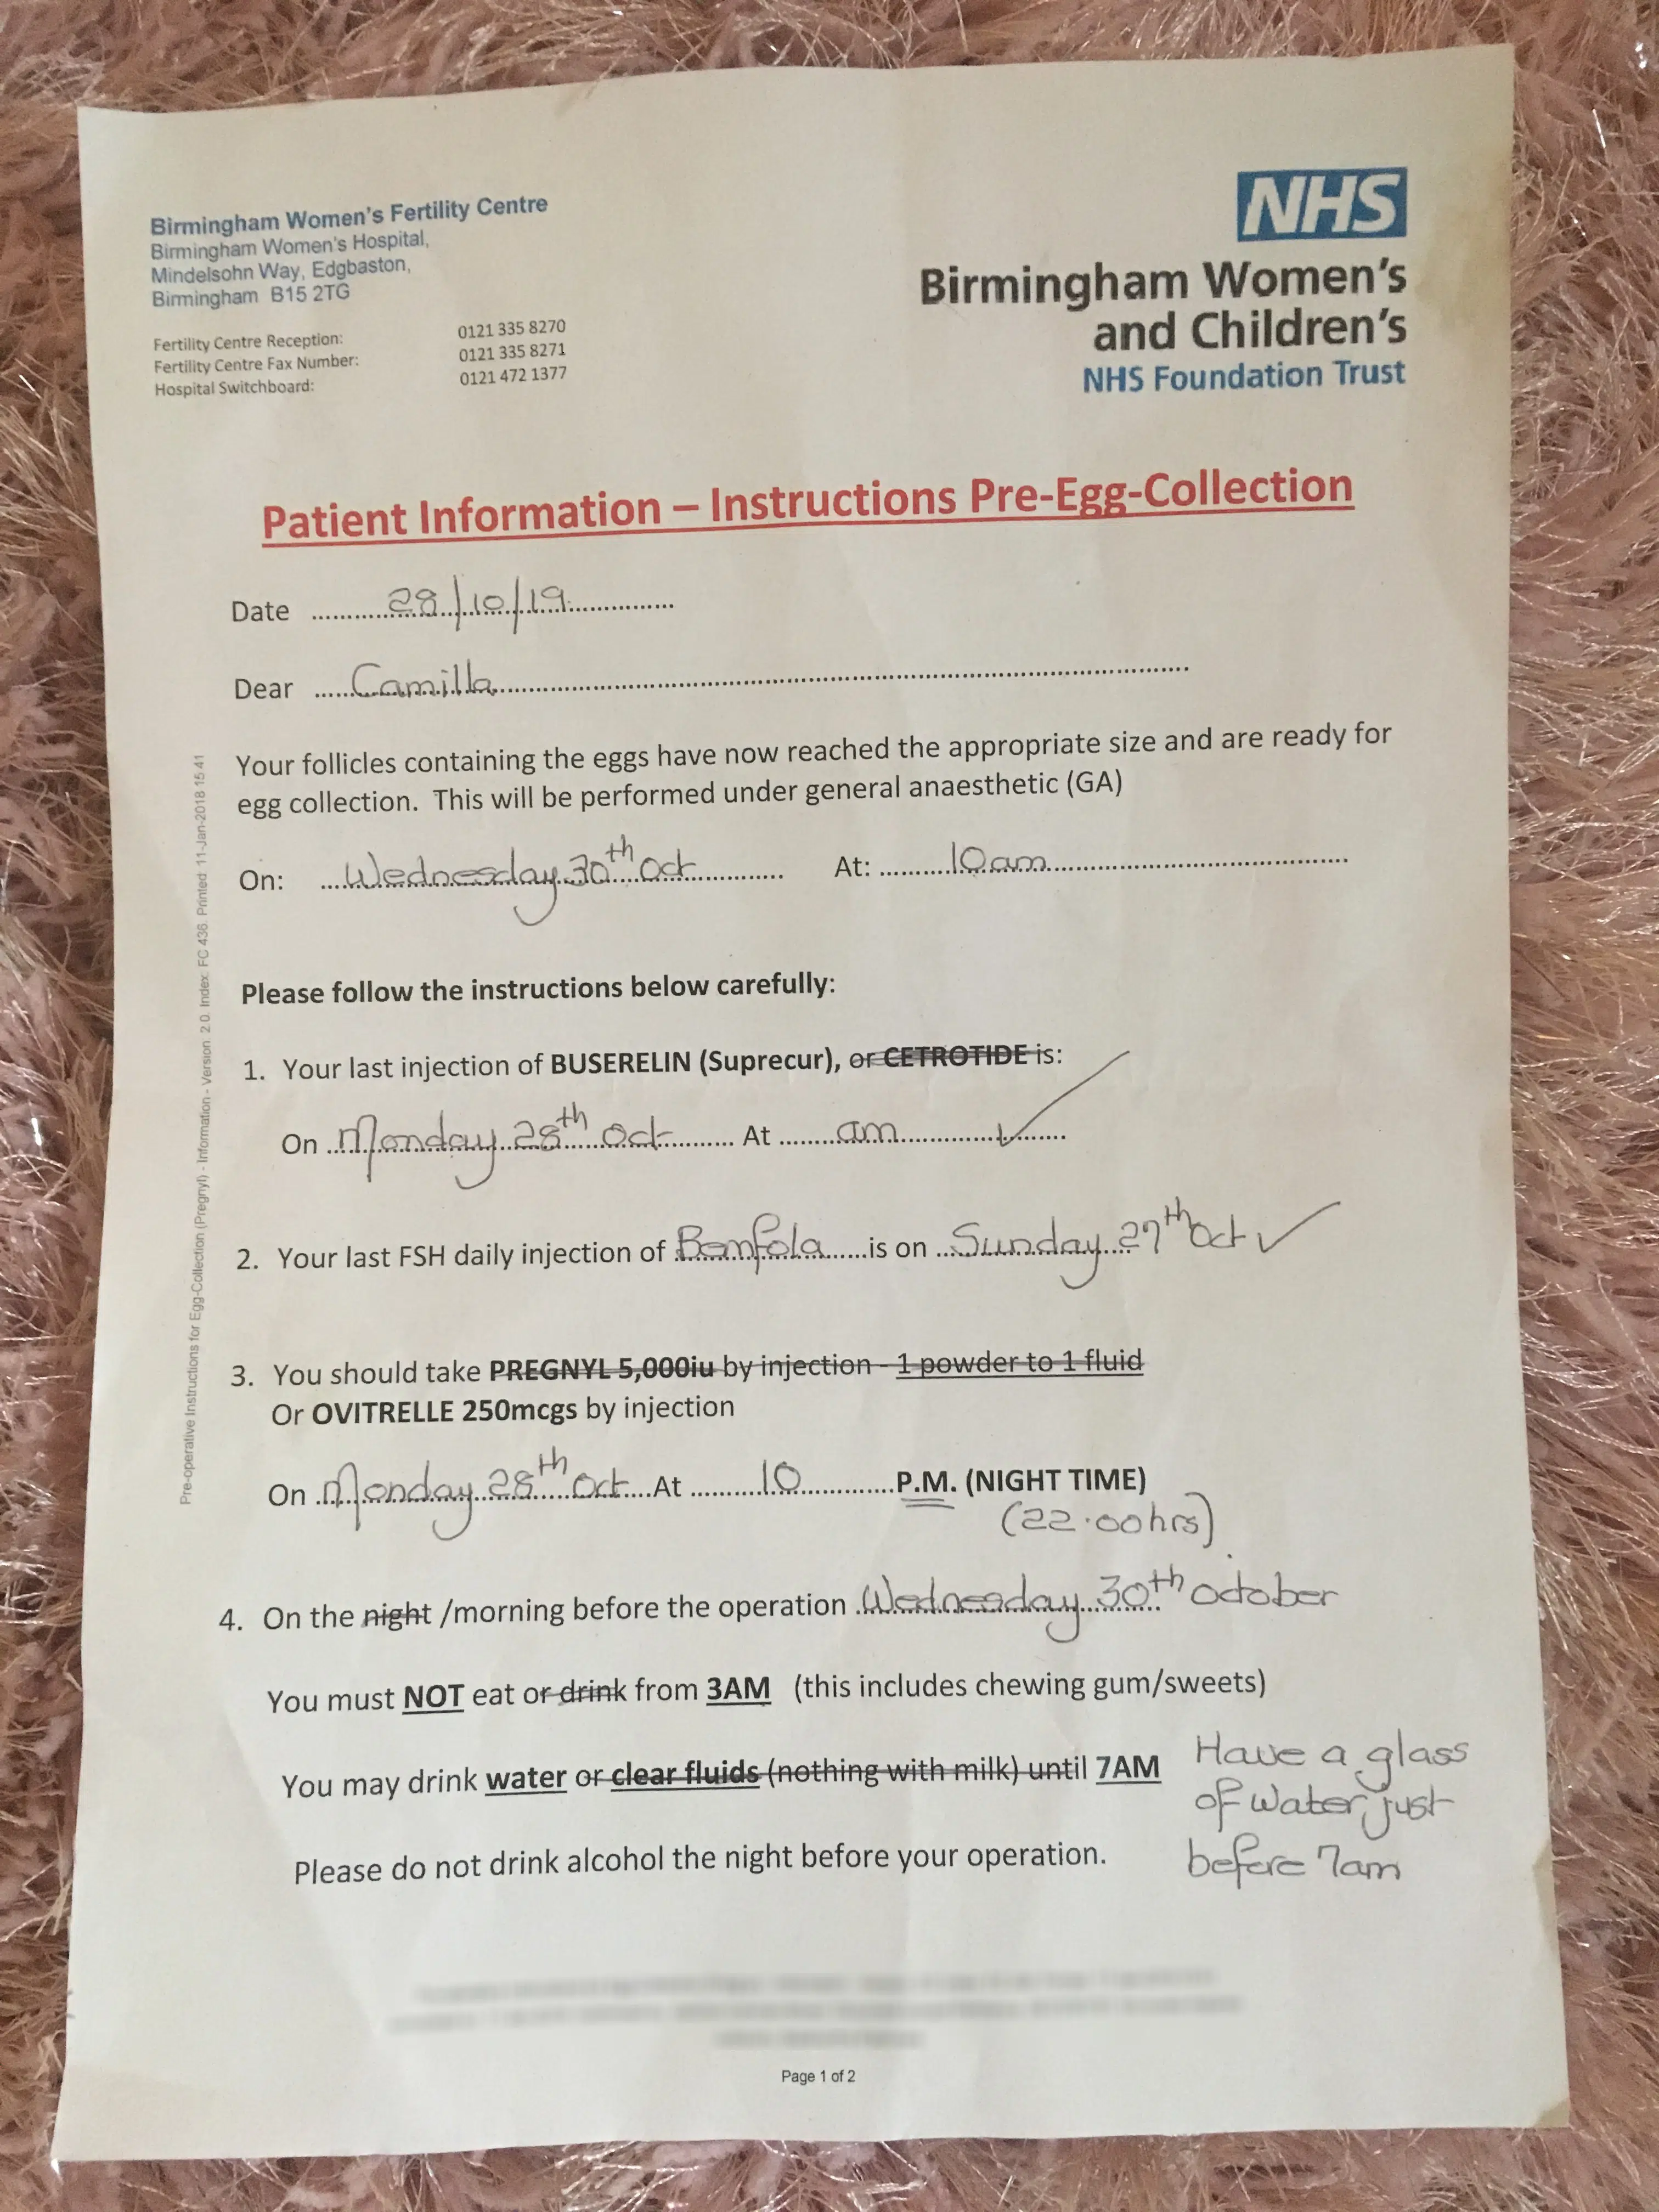 Birmingham Women's Fertility Centre
Birmingham Women's Hospital,
Mindelsohn Way, Edgbaston,
Birmingham B15 2TG
Fertility Centre Reception: 0121 335 8270
Fertility Centre Fax Number: 0121 335 8271
Hospital Switchboard: 0121 472 1377
NHS
Birmingham Women's
and Children's
NHS Foundation Trust
Patient Information – Instructions Pre-Egg-Collection
Date 28/10/19
Dear Camilla
Your follicles containing the eggs have now reached the appropriate size and are ready for
egg collection. This will be performed under general anaesthetic (GA)
On: Wednesday 30th Oct At: 10am
Please follow the instructions below carefully:
1. Your last injection of BUSERELIN (Suprecur), or CETROTIDE is:
On Monday 28th Oct At am ✓
2. Your last FSH daily injection of Bemfola is on Sunday 27th Oct ✓
3. You should take PREGNYL 5,000iu by injection - 1 powder to 1 fluid
Or OVITRELLE 250mcgs by injection
On Monday 28th Oct At 10 P.M. (NIGHT TIME)
(22.00hrs)
4. On the night /morning before the operation Wednesday 30th October
You must NOT eat or drink from 3AM (this includes chewing gum/sweets)
You may drink water or clear fluids (nothing with milk) until 7AM
Have a glass
of water, just
before 7am
Please do not drink alcohol the night before your operation.
Page 1 of 2
Pre-operative Instructions for Egg-Collection (Pregnyl) - Information - Version 2.0. Index: FC 436. Printed 11-Jan-2018 15:41